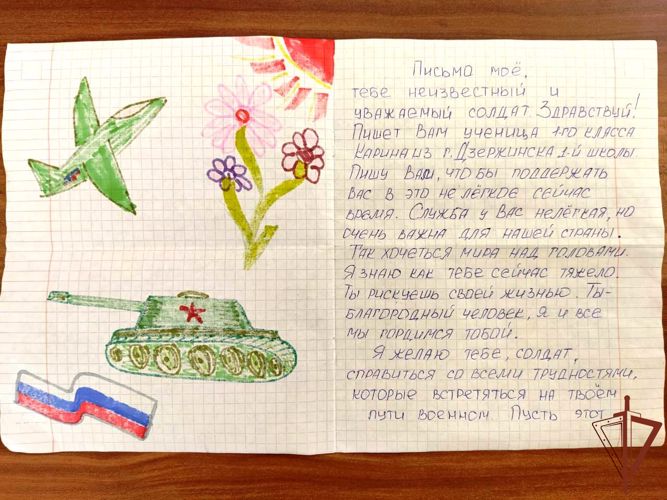 Письмо моё,
тебе неизвестный и
уважаемый солдат. Здравствуй!
Пишет Вам ученица 1-го класса
Карина из г. Дзержинска 1-й школы.
Пишу Вам, что бы поддержать
Вас в это не лёгкое сейчас
время. Служба у Вас нелёгкая, но
очень важна для нашей страны.
Так хочеться мира над головами.
Я знаю как тебе сейчас тяжело.
Ты рискуешь своей жизнью. Ты-
благородный человек, я и все
мы гордимся тобой.
Я желаю тебе, солдат,
справиться со всеми трудностями,
которые встретяться на твоём
пути военном. Пусть этот